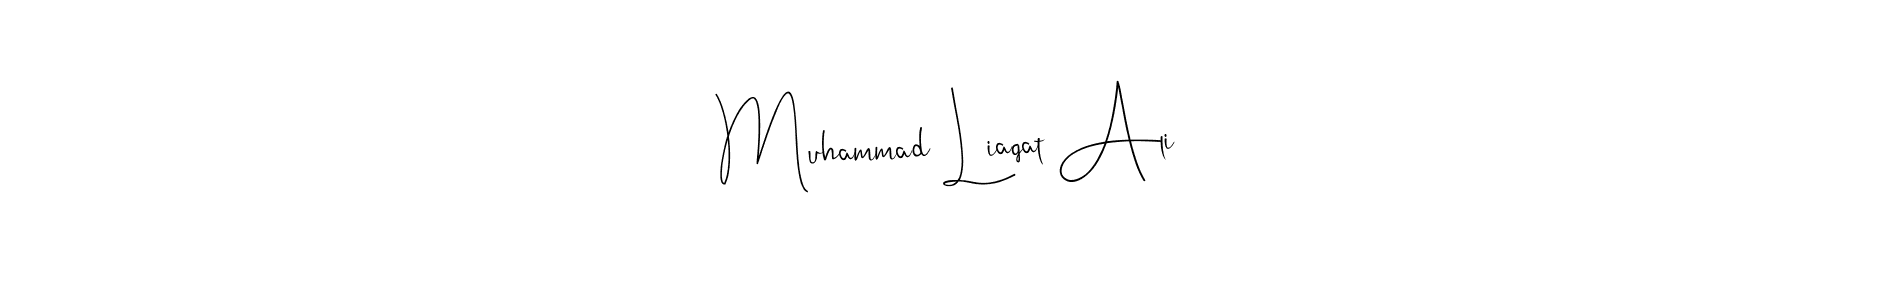 Muhammad Liaqat Ali